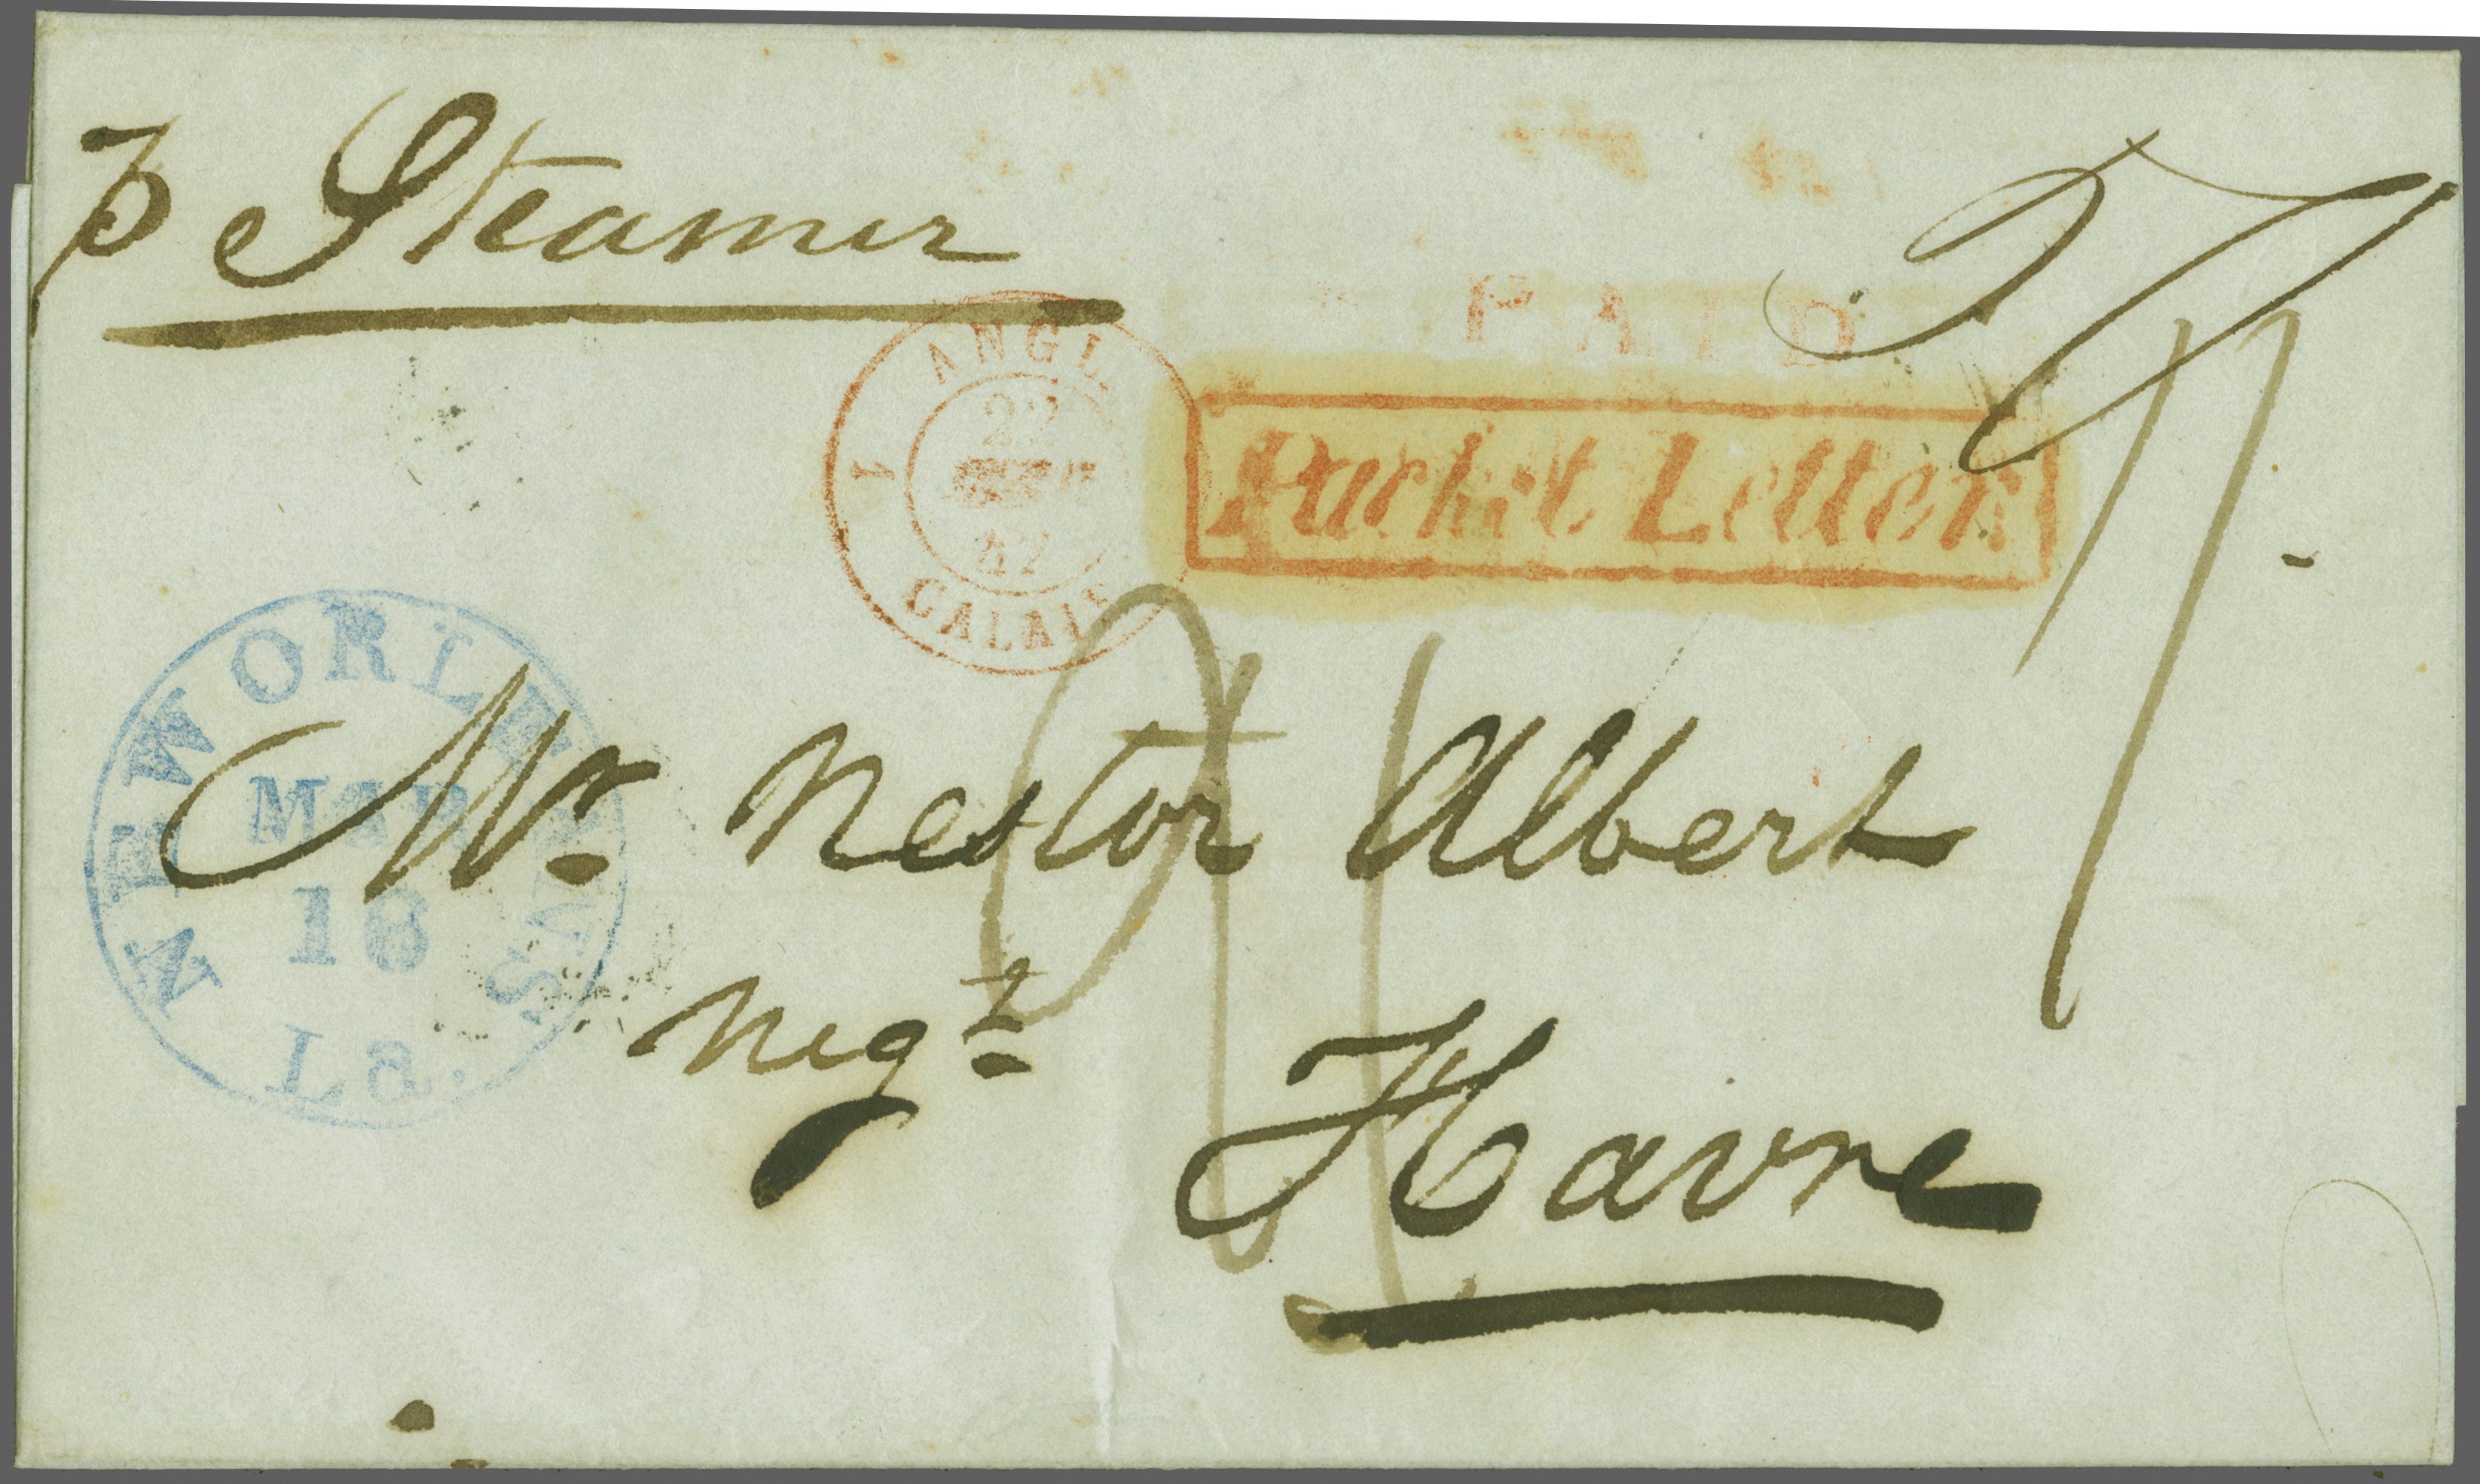 p Steamer
PAID
ANGL.
22
42
CALAIS
1
1
Packet Letter
NEW ORLEANS
MAR
18
La.
Mr. Nestor Albert
Negt.
Havre